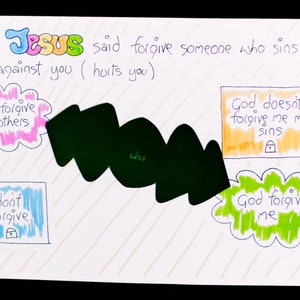 Jesus said forgive someone who sins
against you (hurts you)
forgive
others
God doesn't
forgive me m
sins
don't
forgive
God forgive
me